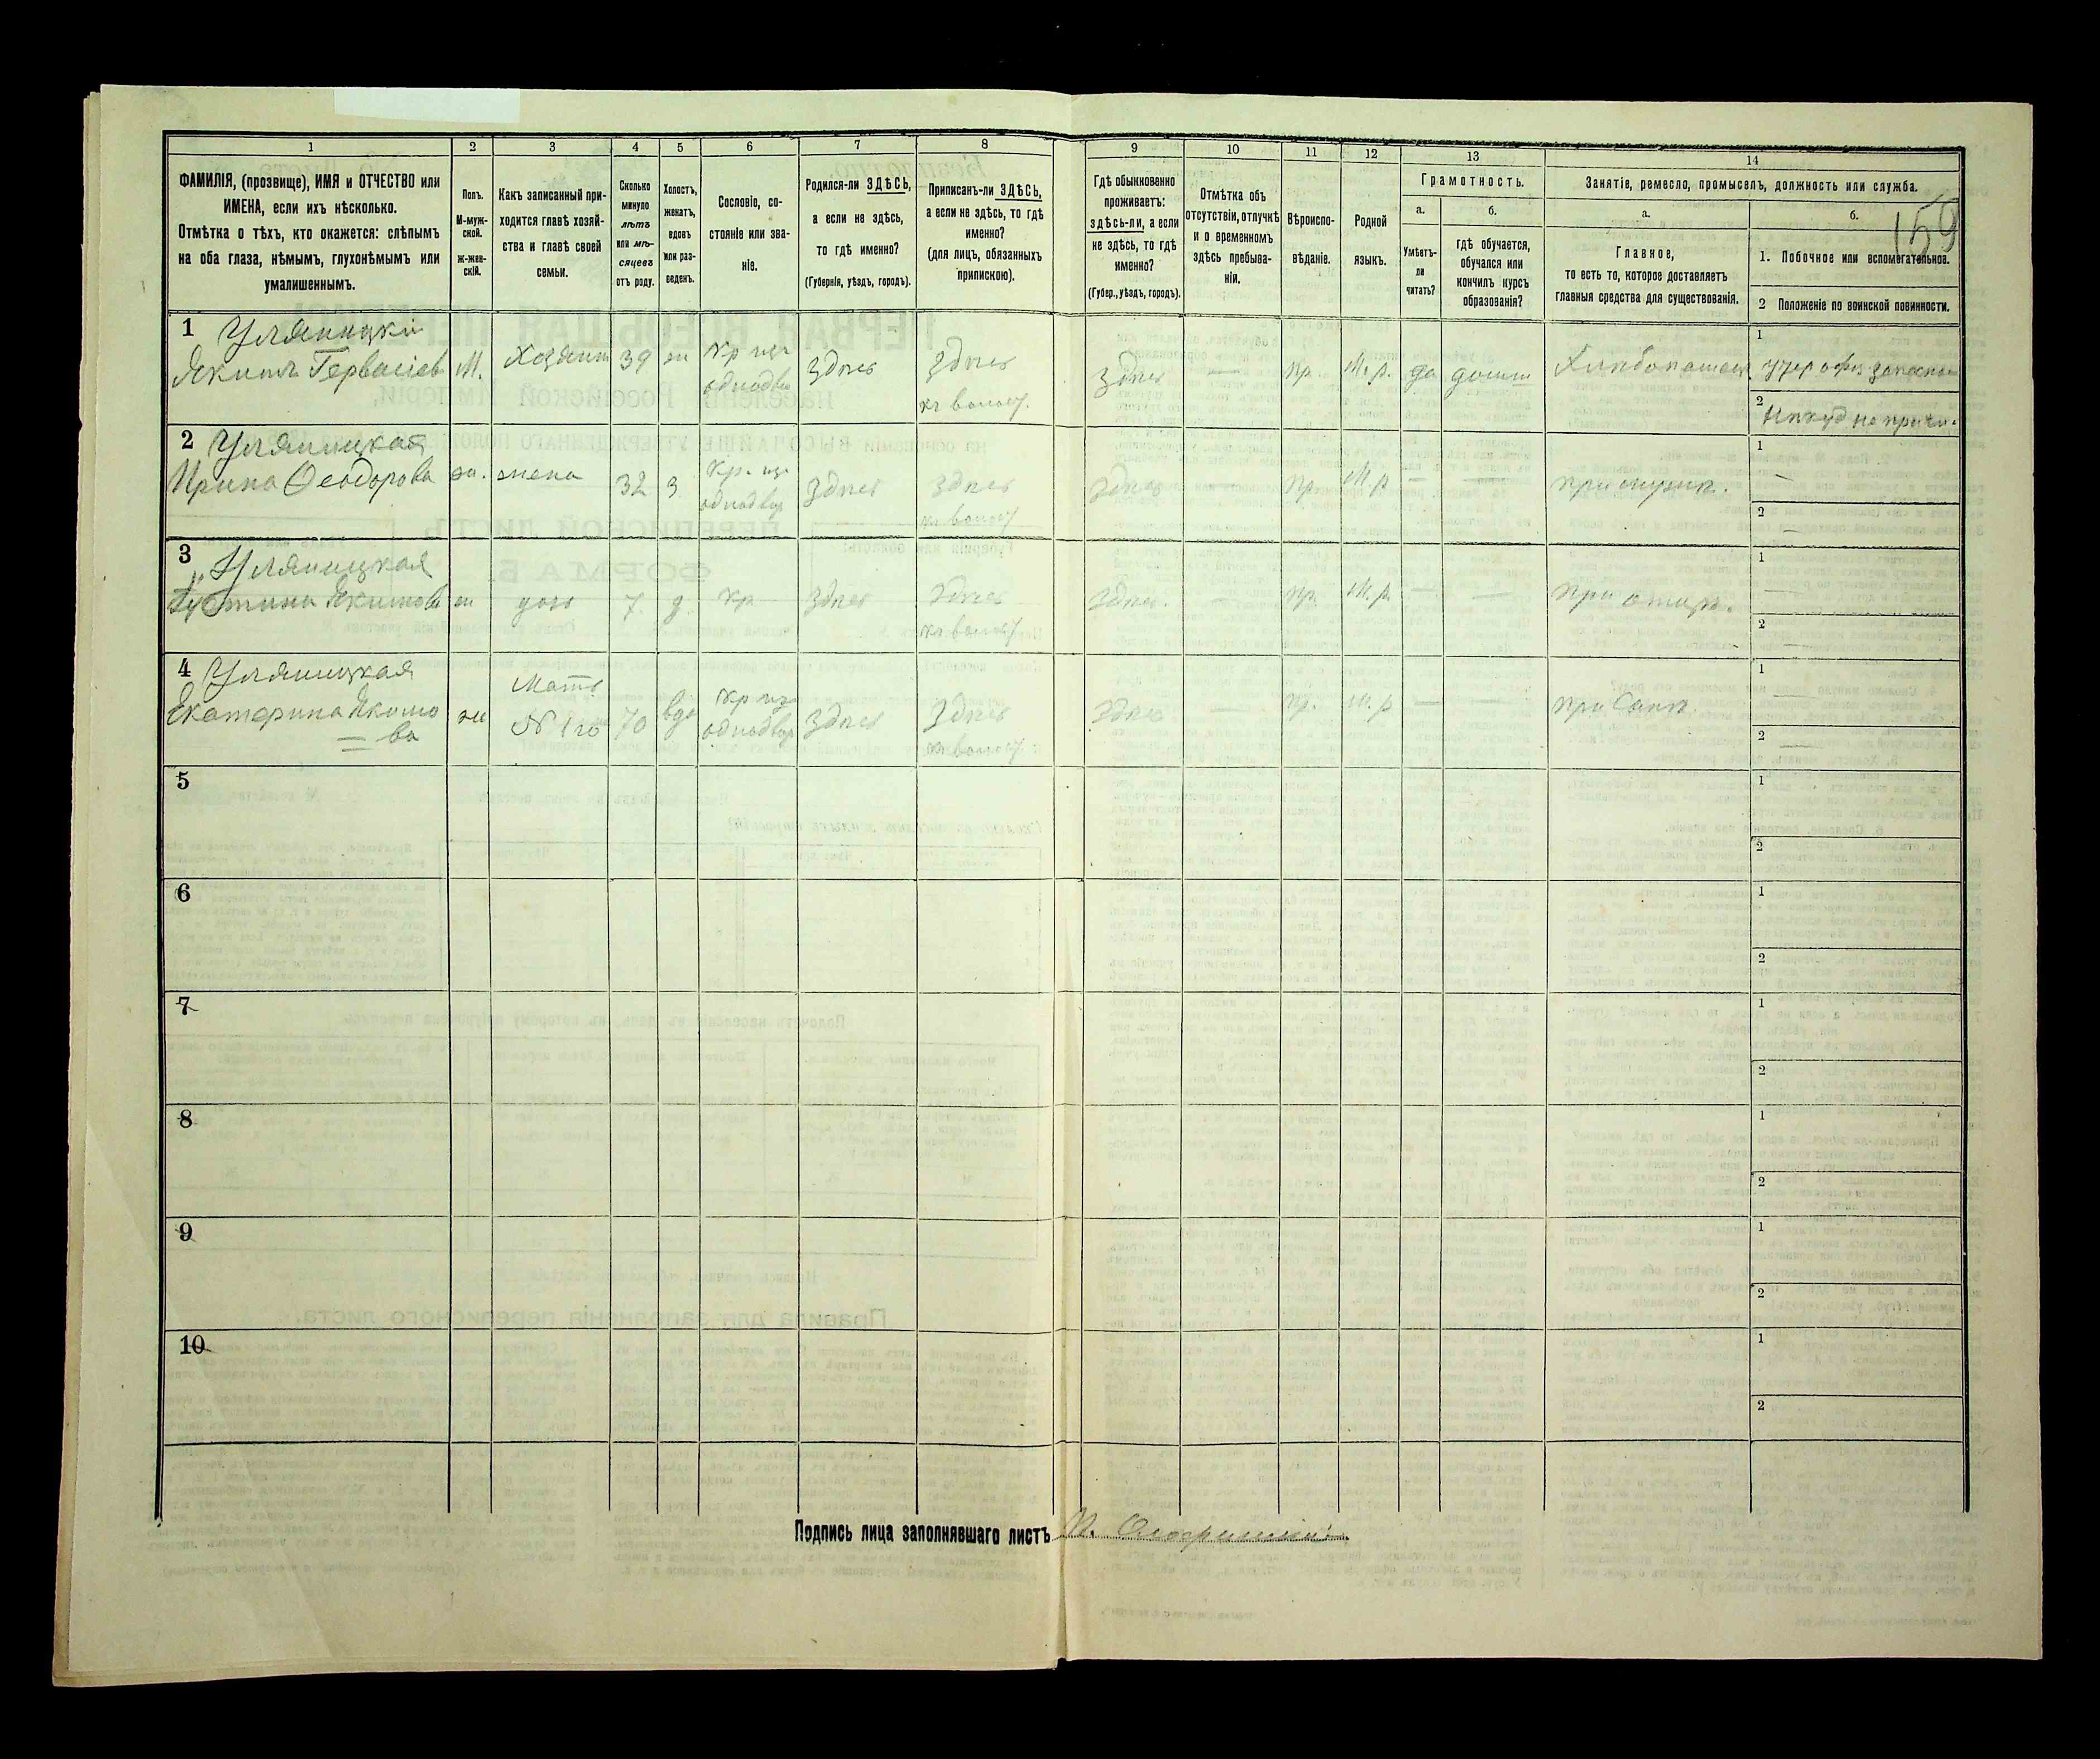 159
1 2 3 4 5 6 7 8 9 10 11 12 13 14
ФАМИЛІЯ, (прозвище), ИМЯ и ОТЧЕСТВО или
ИМЕНА, если ихъ нѣсколько.
Отмѣтка о тѣхъ, кто окажется: слѣпымъ
на оба глаза, нѣмымъ, глухонѣмымъ или
умалишеннымъ.
Полъ.
М-муж-
ской.
ж-жен-
скій.
Какъ записанный при-
ходится главѣ хозяй-
ства и главѣ своей
семьи.
Сколько
минуло
лѣтъ
или мѣ-
сяцевъ
отъ роду.
Холостъ,
женатъ,
вдовъ
или раз-
веденъ.
Сословіе, со-
стояніе или зва-
ніе.
Родился-ли ЗДѢСЬ,
а если не здѣсь,
то гдѣ именно?
(Губернія, уѣздъ, городъ).
Приписанъ-ли ЗДѢСЬ,
а если не здѣсь, то гдѣ
именно?
(для лицъ, обязанныхъ
припискою).
Гдѣ обыкновенно
проживаетъ:
здѣсь-ли, а если
не здѣсь, то гдѣ
именно?
(Губер., уѣздъ, городъ).
Отмѣтка объ
отсутствіи, отлучкѣ
и о временномъ
здѣсь пребыва-
ніи.
Вѣроиспо-
вѣданіе.
Родной
языкъ.
Грамотность.
а.
Умѣетъ-
ли
читать?
б.
гдѣ обучается,
обучался или
кончилъ курсъ
образованія?
Занятіе, ремесло, промыселъ, должность или служба.
а.
Главное,
то есть то, которое доставляетъ
главныя средства для существованія.
б.
1. Побочное или вспомогательное.
2 Положеніе по воинской повинности.
1 Уляницкій
Якимъ Гервасіев М. Хозяин 39 ж Кр из однодв Здѣсь Здѣсь Здѣсь — пр. М.р. да Хлѣбопашец
2 Уляницкая
Ирина Ѳеодорова ж. жена 32 з Кр. из однодвор Здѣсь Здѣсь Здѣсь пр. М.р. — — При мужѣ. —
3 Уляницкая
Якимова ж дочь 7 д кр Здѣсь Здѣсь Здѣсь. — пр. М.р. — — При отцѣ. —
4 Уляницкая
Екатерина Якимо
ва ж Мать N 1го 70 вдо Кр из однодвор Здѣсь Здѣсь Здѣсь — пр. М.р — — При Сынѣ. —
5
6
7
8
9
10
Подпись лица заполнявшаго листъ